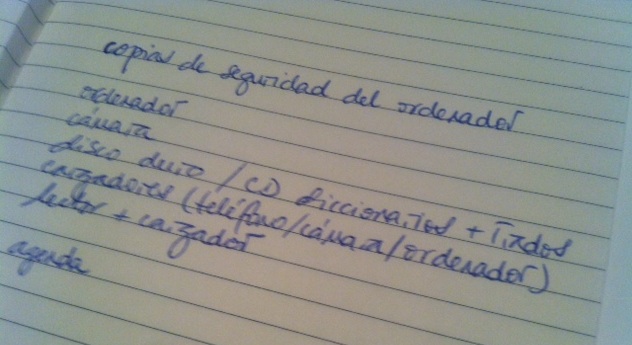 copias de seguridad del ordenador
ordenador
cámara
disco duro / CD diccionarios + Tirados
cargadores (teléfono/cámara/ordenador)
lector + cargador
agenda